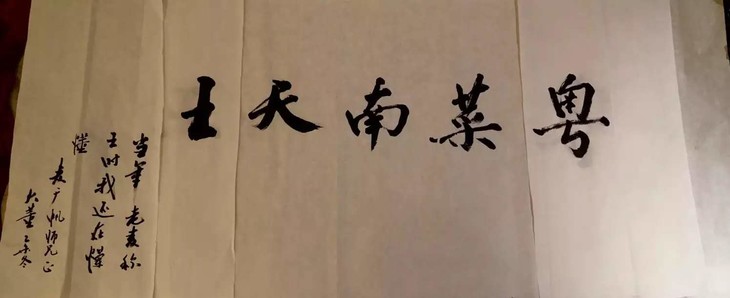 粤菜南天王
当年老麦称
王时我还在懵
懂
麦广帆师兄正
大董乙未冬